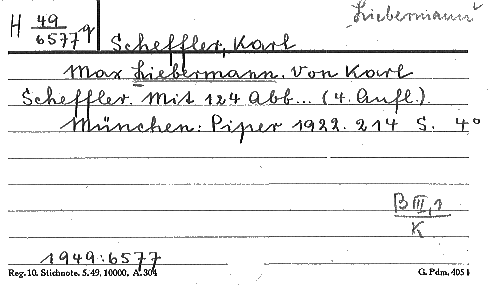 „Liebermann"
H 49/6577 q
Scheffler, Karl
Max Liebermann. Von Karl
Scheffler. Mit 124 Abb... (4. Aufl.).
München: Piper 1922. 214 S. 4°
B III, 1
K
1949:6577
Reg. 10. Stichnote. 5. 49, 10000, A. 304
G. Pdm. 4051